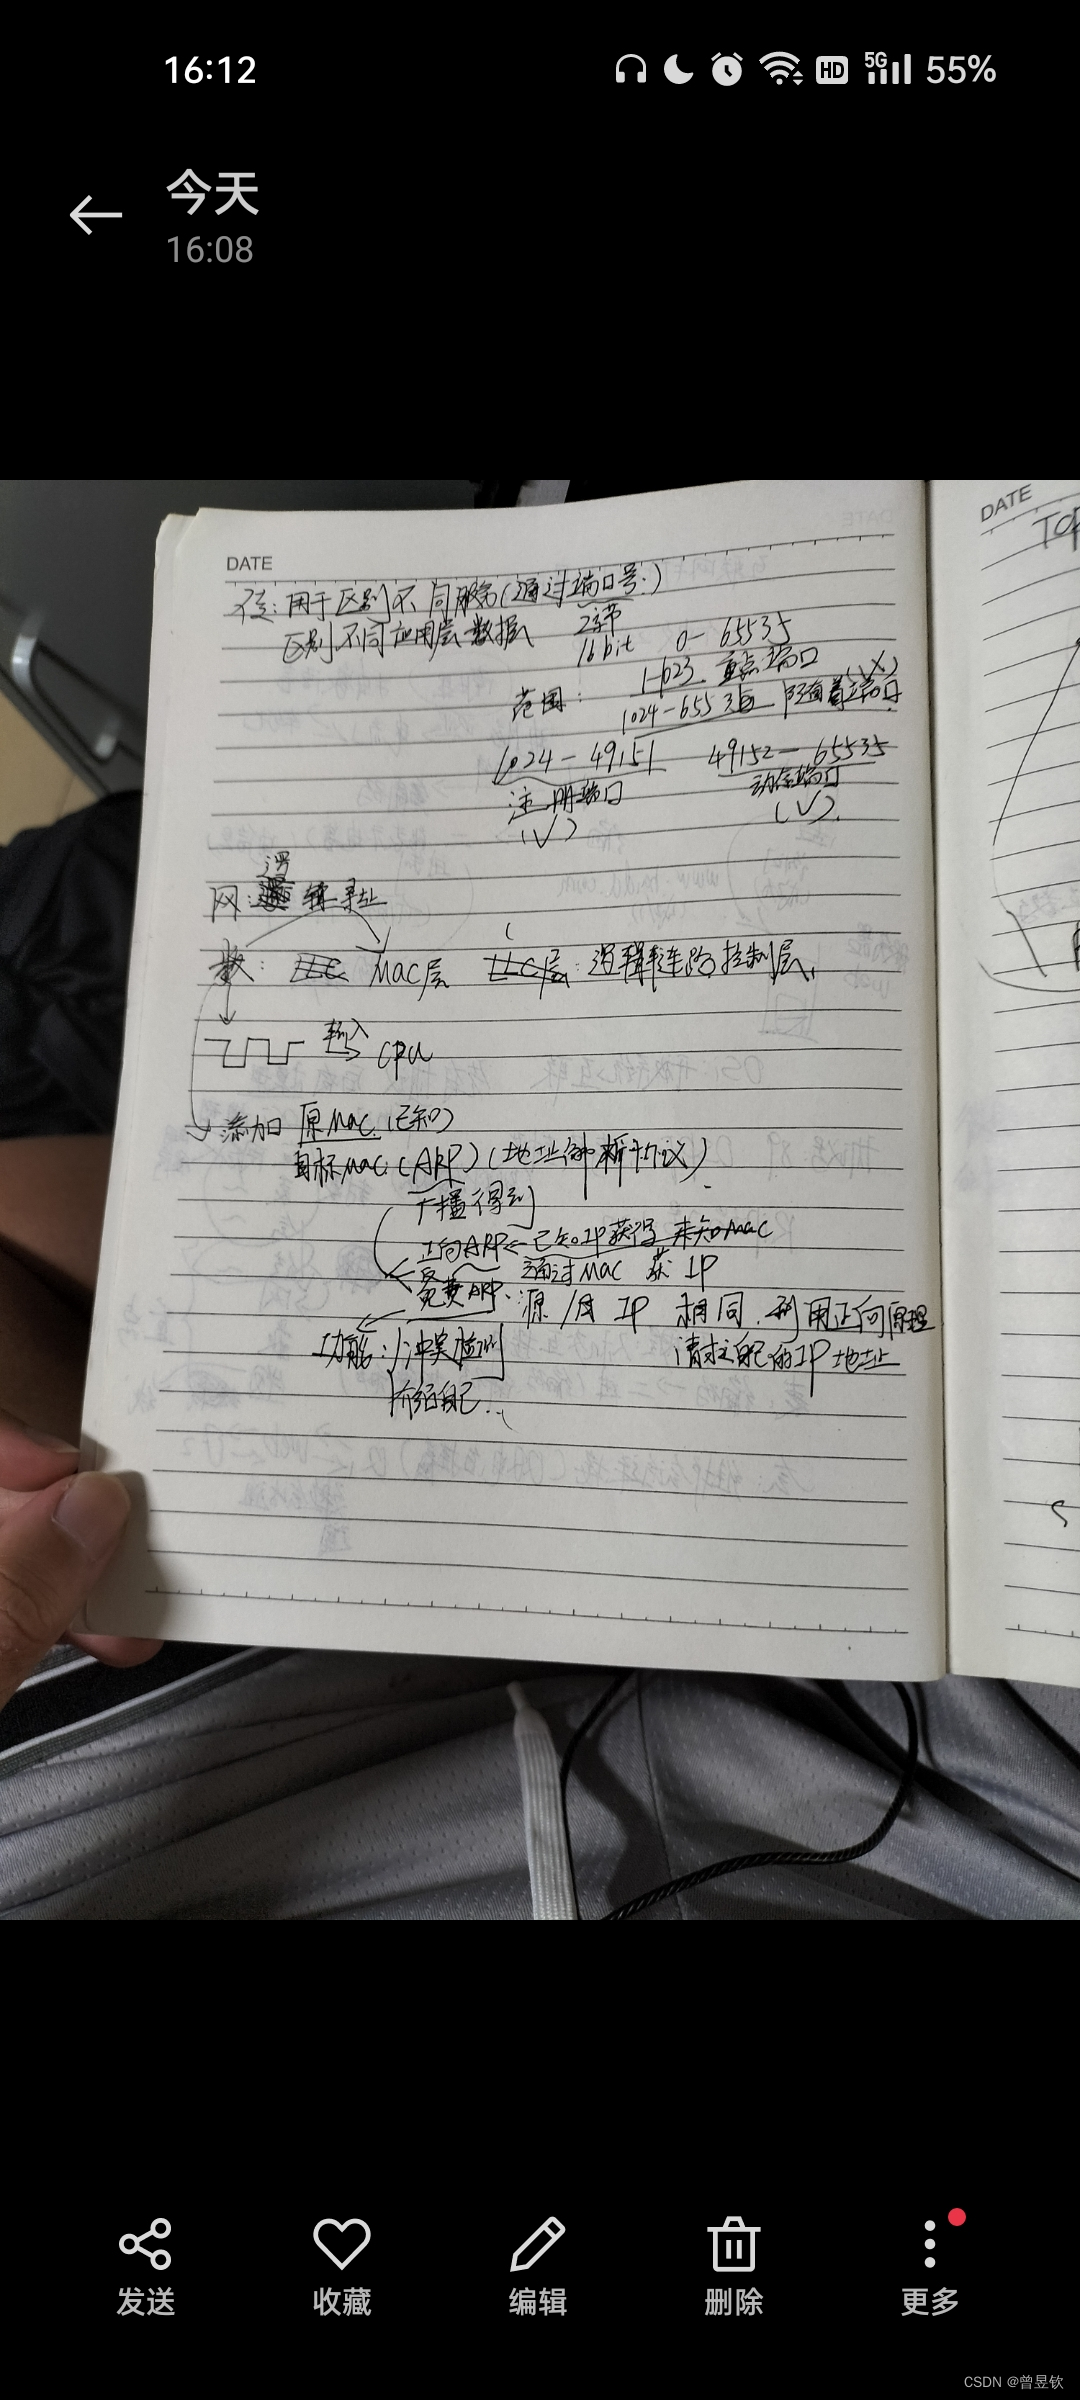 16:12
HD 5G 55%
今天
16:08
DATE
DATE
传:用于区别不同服务(通过端口号.)
区别不同应用层数据
2字节
16bit 0-65535
范围:
1-1023. 重点端口
1024-65535 随着端口 (X)
1024-49151 49152-65535
注册端口 动态端口
(√) (√).
逻
网: 辑寻址
数: LLC MAC层 LLC层:逻辑链路控制层.
输入
CPU
添加 原MAC.(已知)
目标MAC:(ARP)(地址解析协议)
广播得到
正向ARP←已知IP获得未知MAC
通过MAC 获 IP
免费ARP. 源/目 IP 相同.利用正向原理
请求自己的IP地址
功能:冲突检测
介绍自己..
发送
收藏
编辑
删除
更多
CSDN @曾昱钦